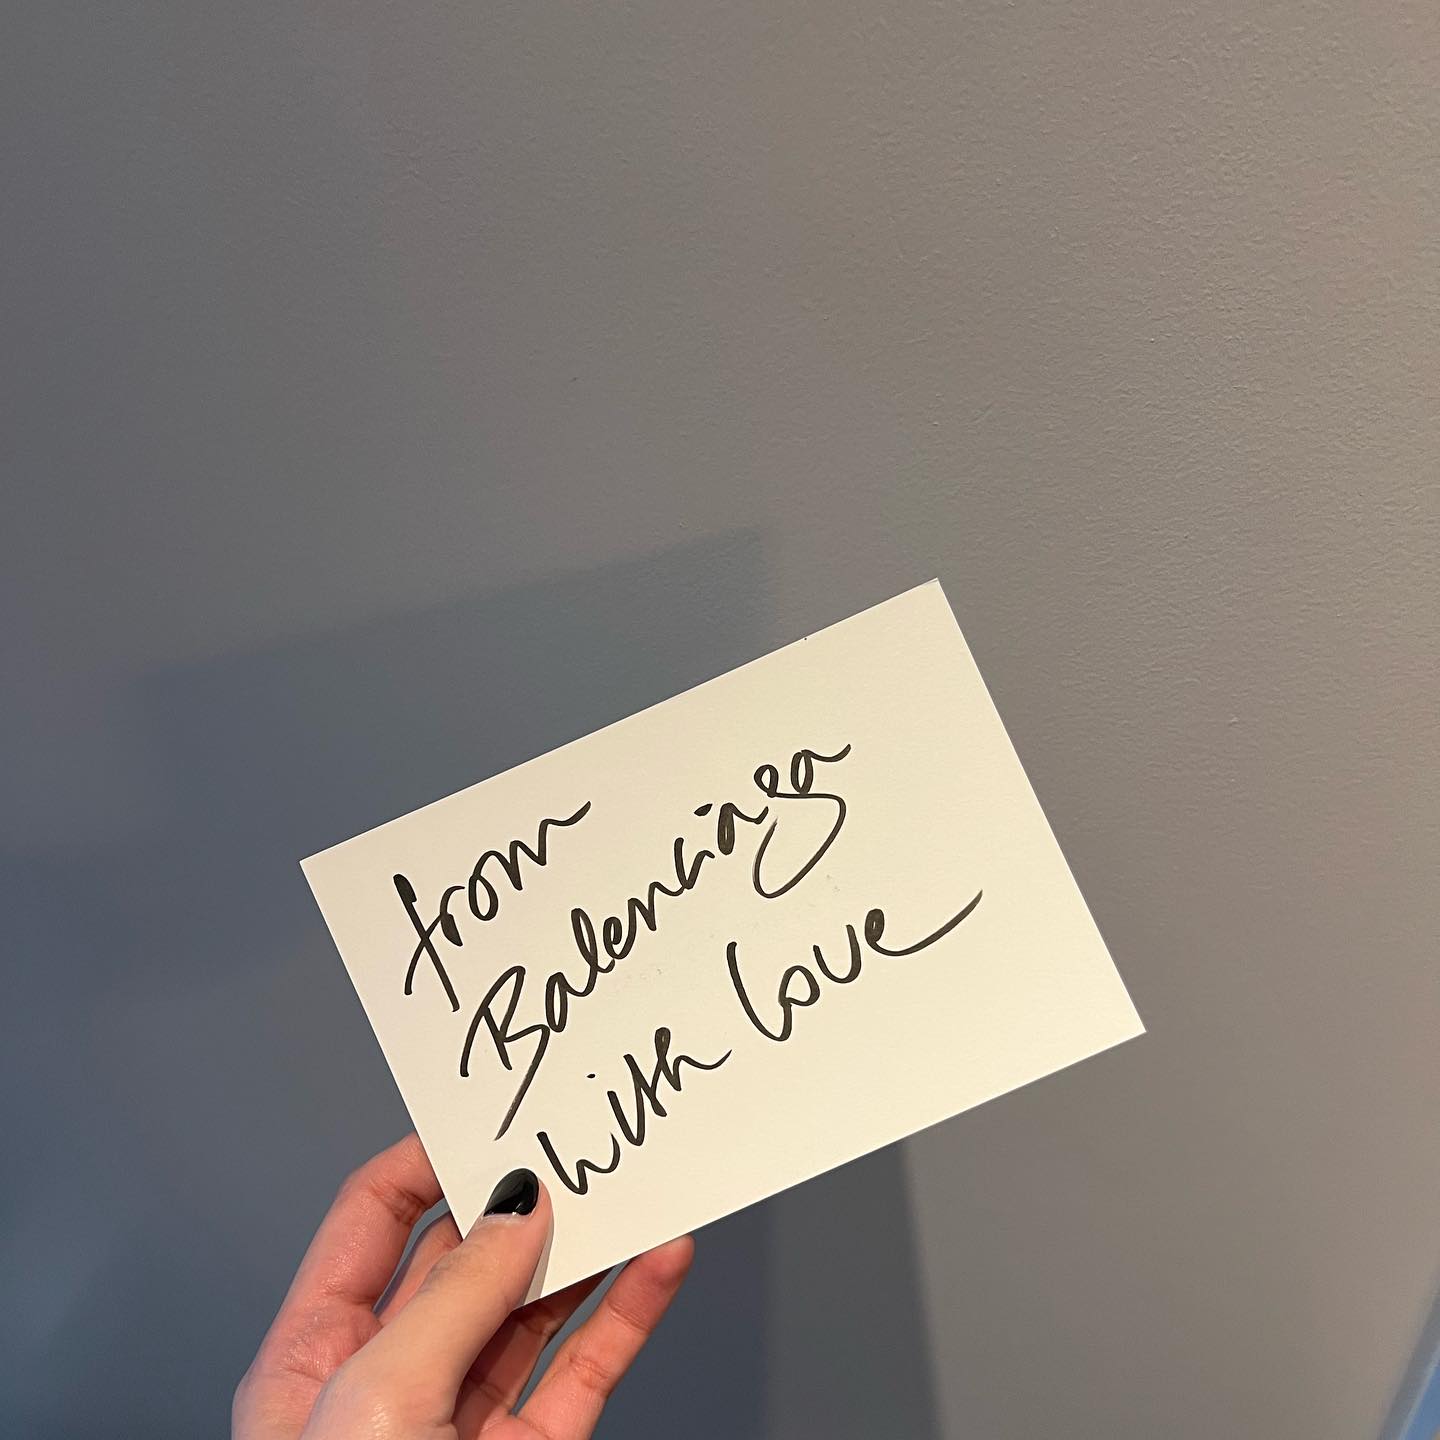 from
Balenciaga
with love